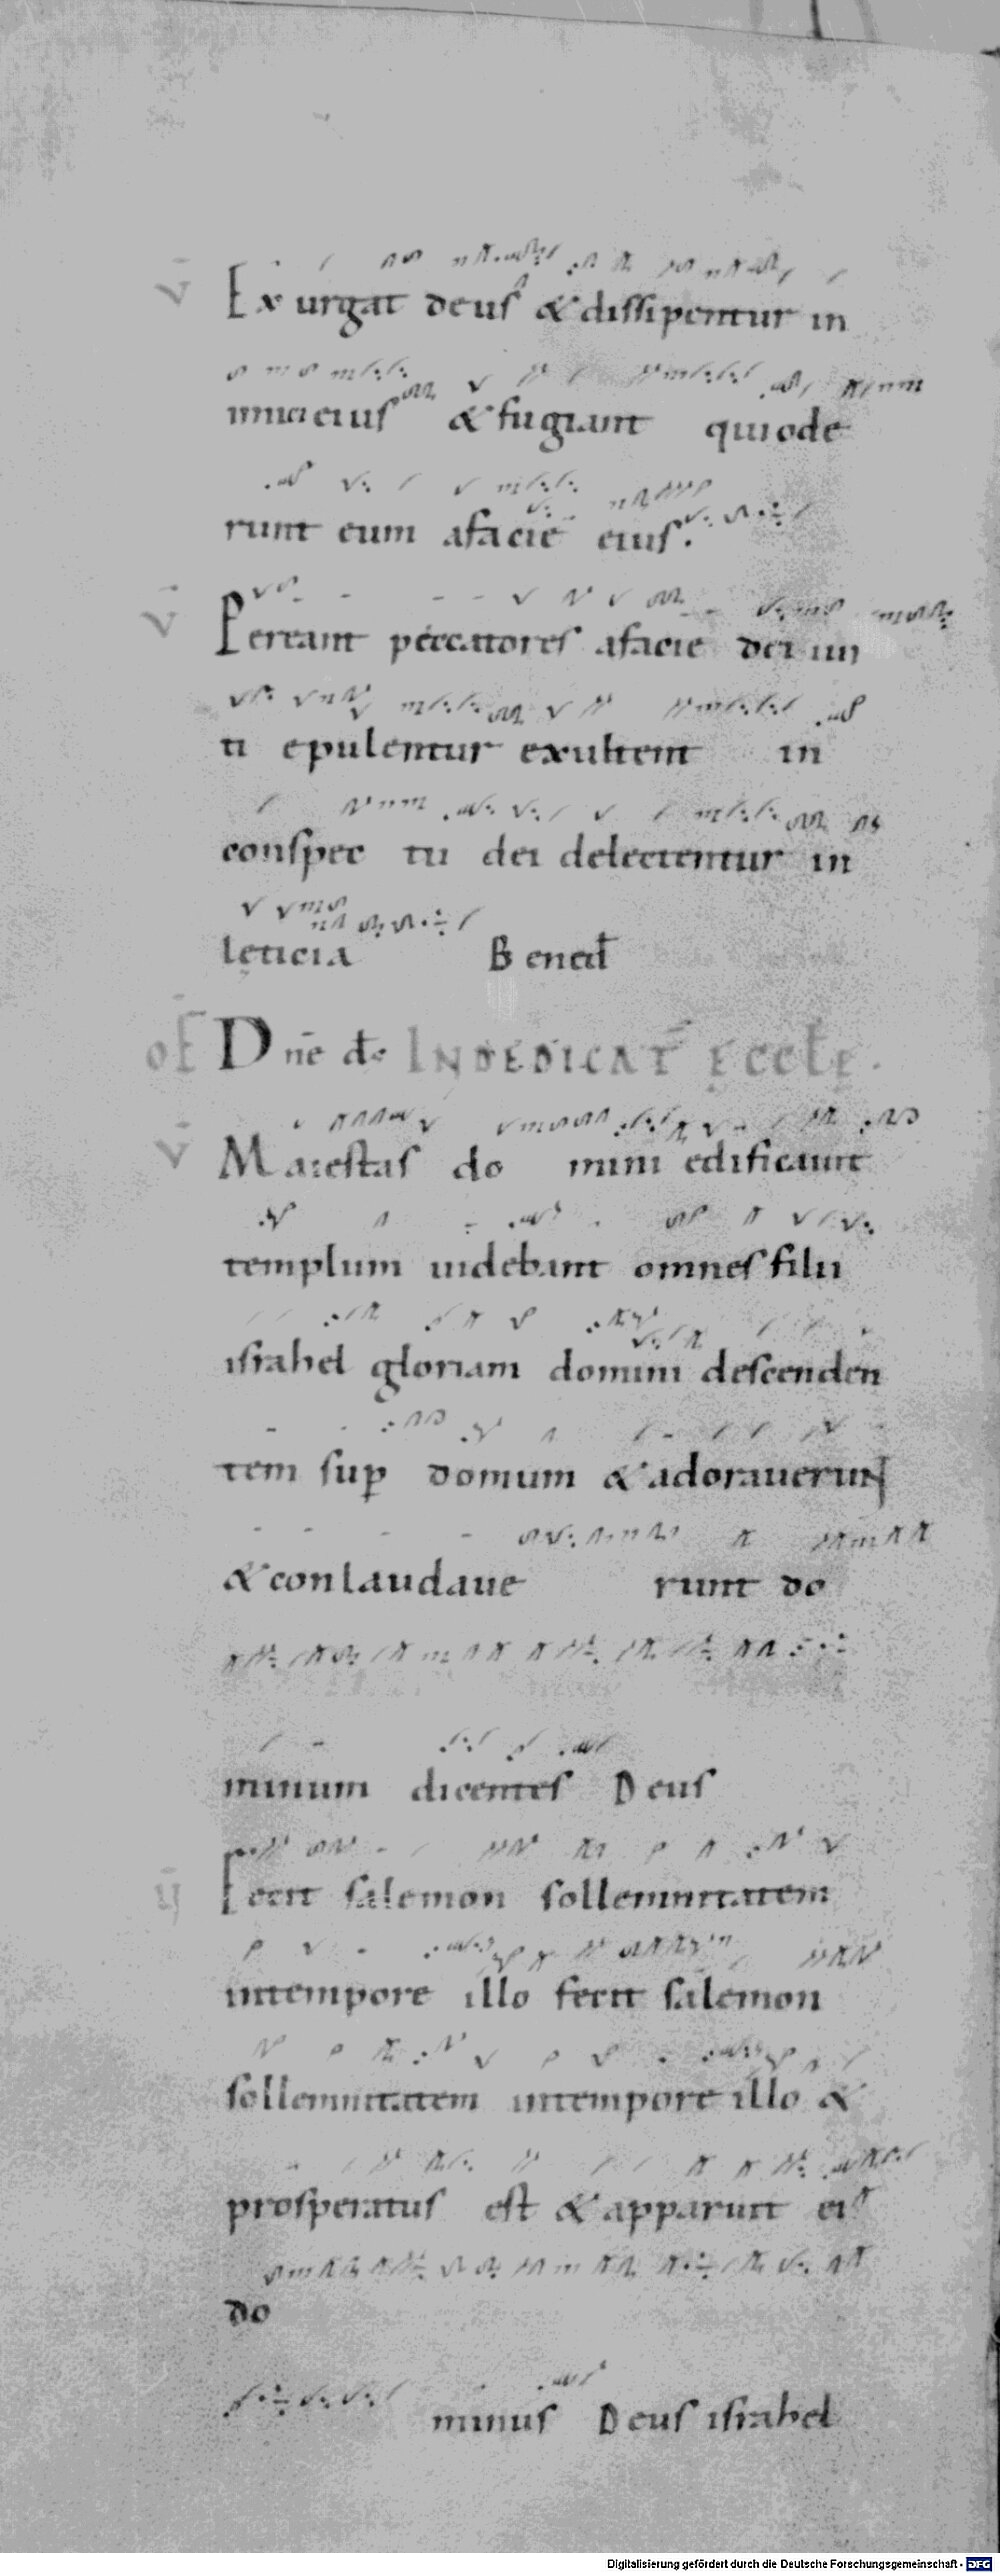 v̄ Exurgat deus & dissipentur in
imici eius & fugiant qui ode
runt eum afacie eius.
v̄ Pereant peccatores afacie dei iusti
ti epulentur exultent in
conspec tu dei delectentur in
lęticia Bened̄
OF Dn̄e ds̄ IN DEDICAT̄ ECCL̄E.
v̄ Maiestas do mini edificauit
templum uidebant omnes filii
israhel gloriam domini descenden
tem sup domum & adorauerunt
& conlaudaue runt do
minum dicentes Deus
ij Fecit salemon sollemnitatem
intempore illo fecit salemon
sollemnitatem intempore illo &
prosperatus est & apparuit ei
do
minus Deus israhel
Digitalisierung gefördert durch die Deutsche Forschungsgemeinschaft - DFG